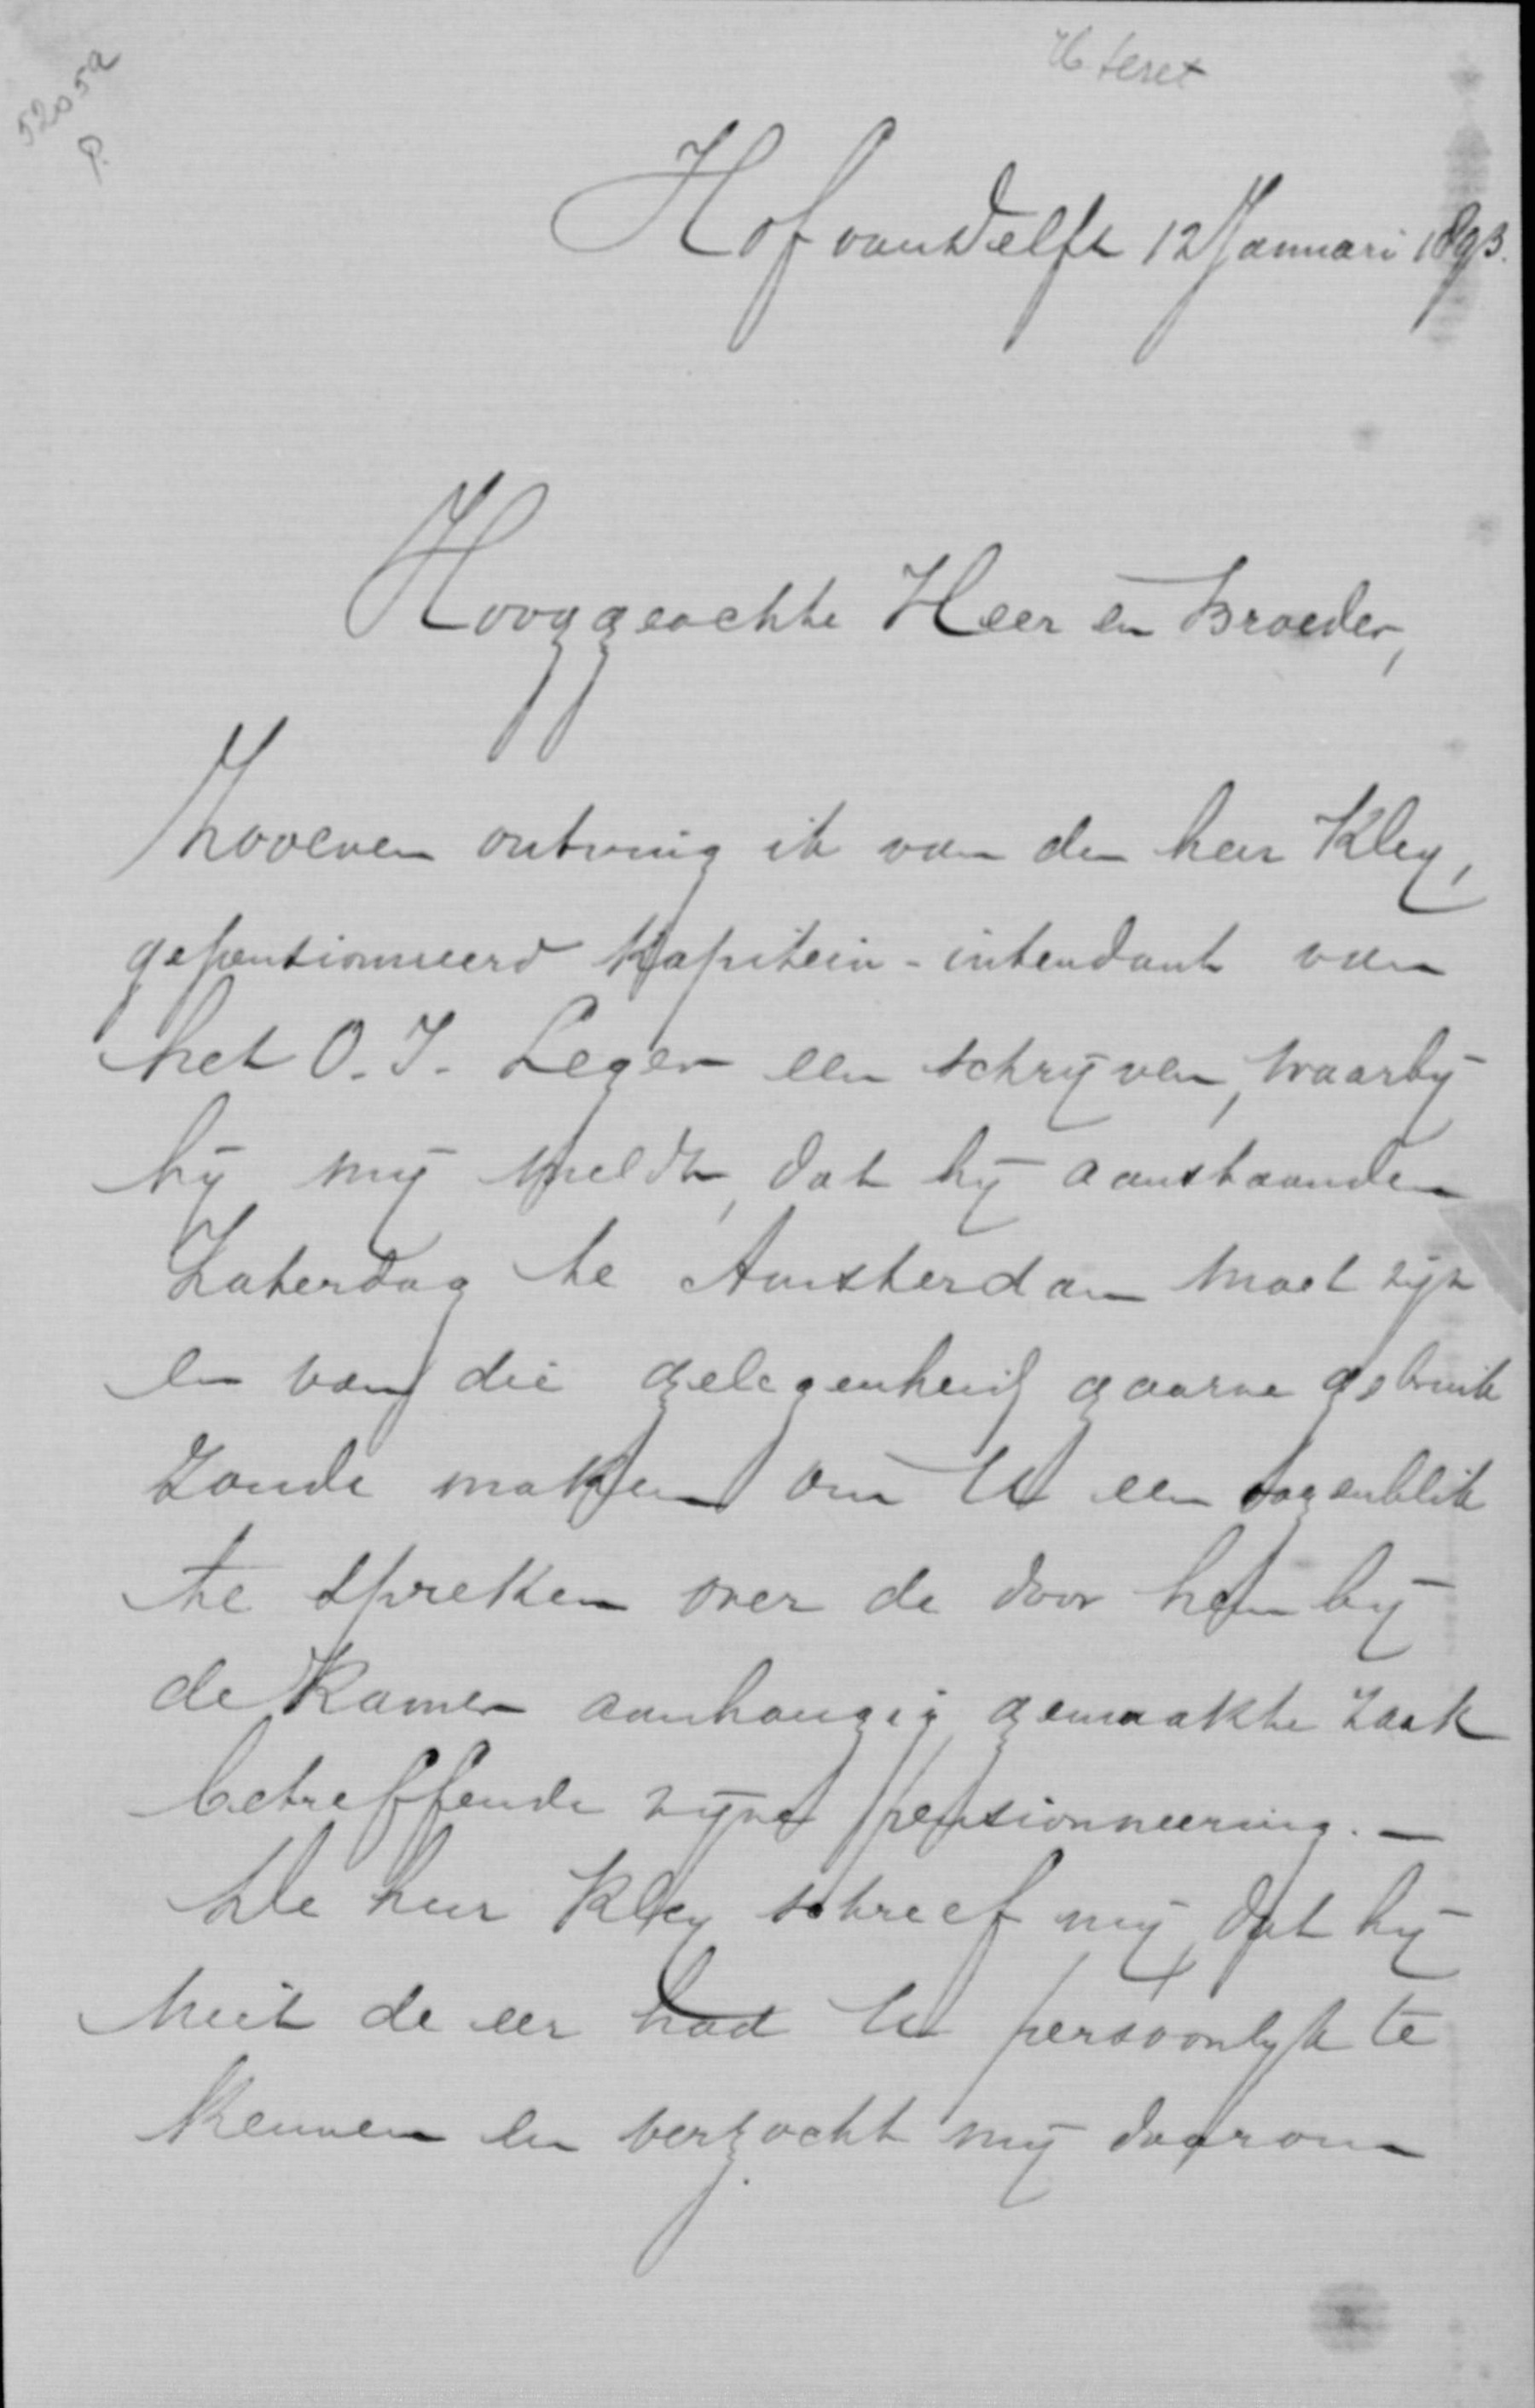 5205a
P.
Hof van Delft 12 Januari 1893.
Hooggeachte Heer en Broeder,
Zooeven ontving ik van den heer Kley,
gepensionneerd Kapitein-intendant van
het O. I. Leger een schrijven, waarbij
hij mij meldt, dat hij aanstaanden
Zaterdag te Amsterdam moet zijn
en van die gelegenheid gaarne gebruik
zoude maken om U een oogenblik
te spreken over de door hem bij
de Kamer aanhangig gemaakte zaak
betreffende zijne pensionneering. —
De heer Kley schreef mij, dat hij
niet de eer had U persoonlijk te
kennen en verzocht mij daarom